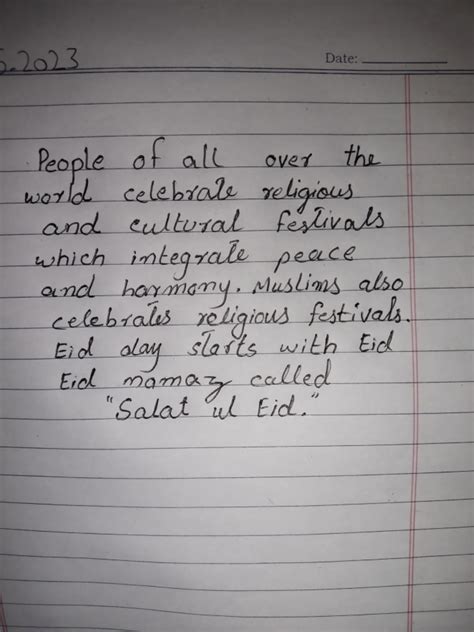 5.2023
Date:
People of all over the
world celebrate religious
and cultural festivals
which integrate peace
and harmony. Muslims also
celebrates religious festivals.
Eid day starts with Eid
Eid mamaz called
"Salat ul Eid."